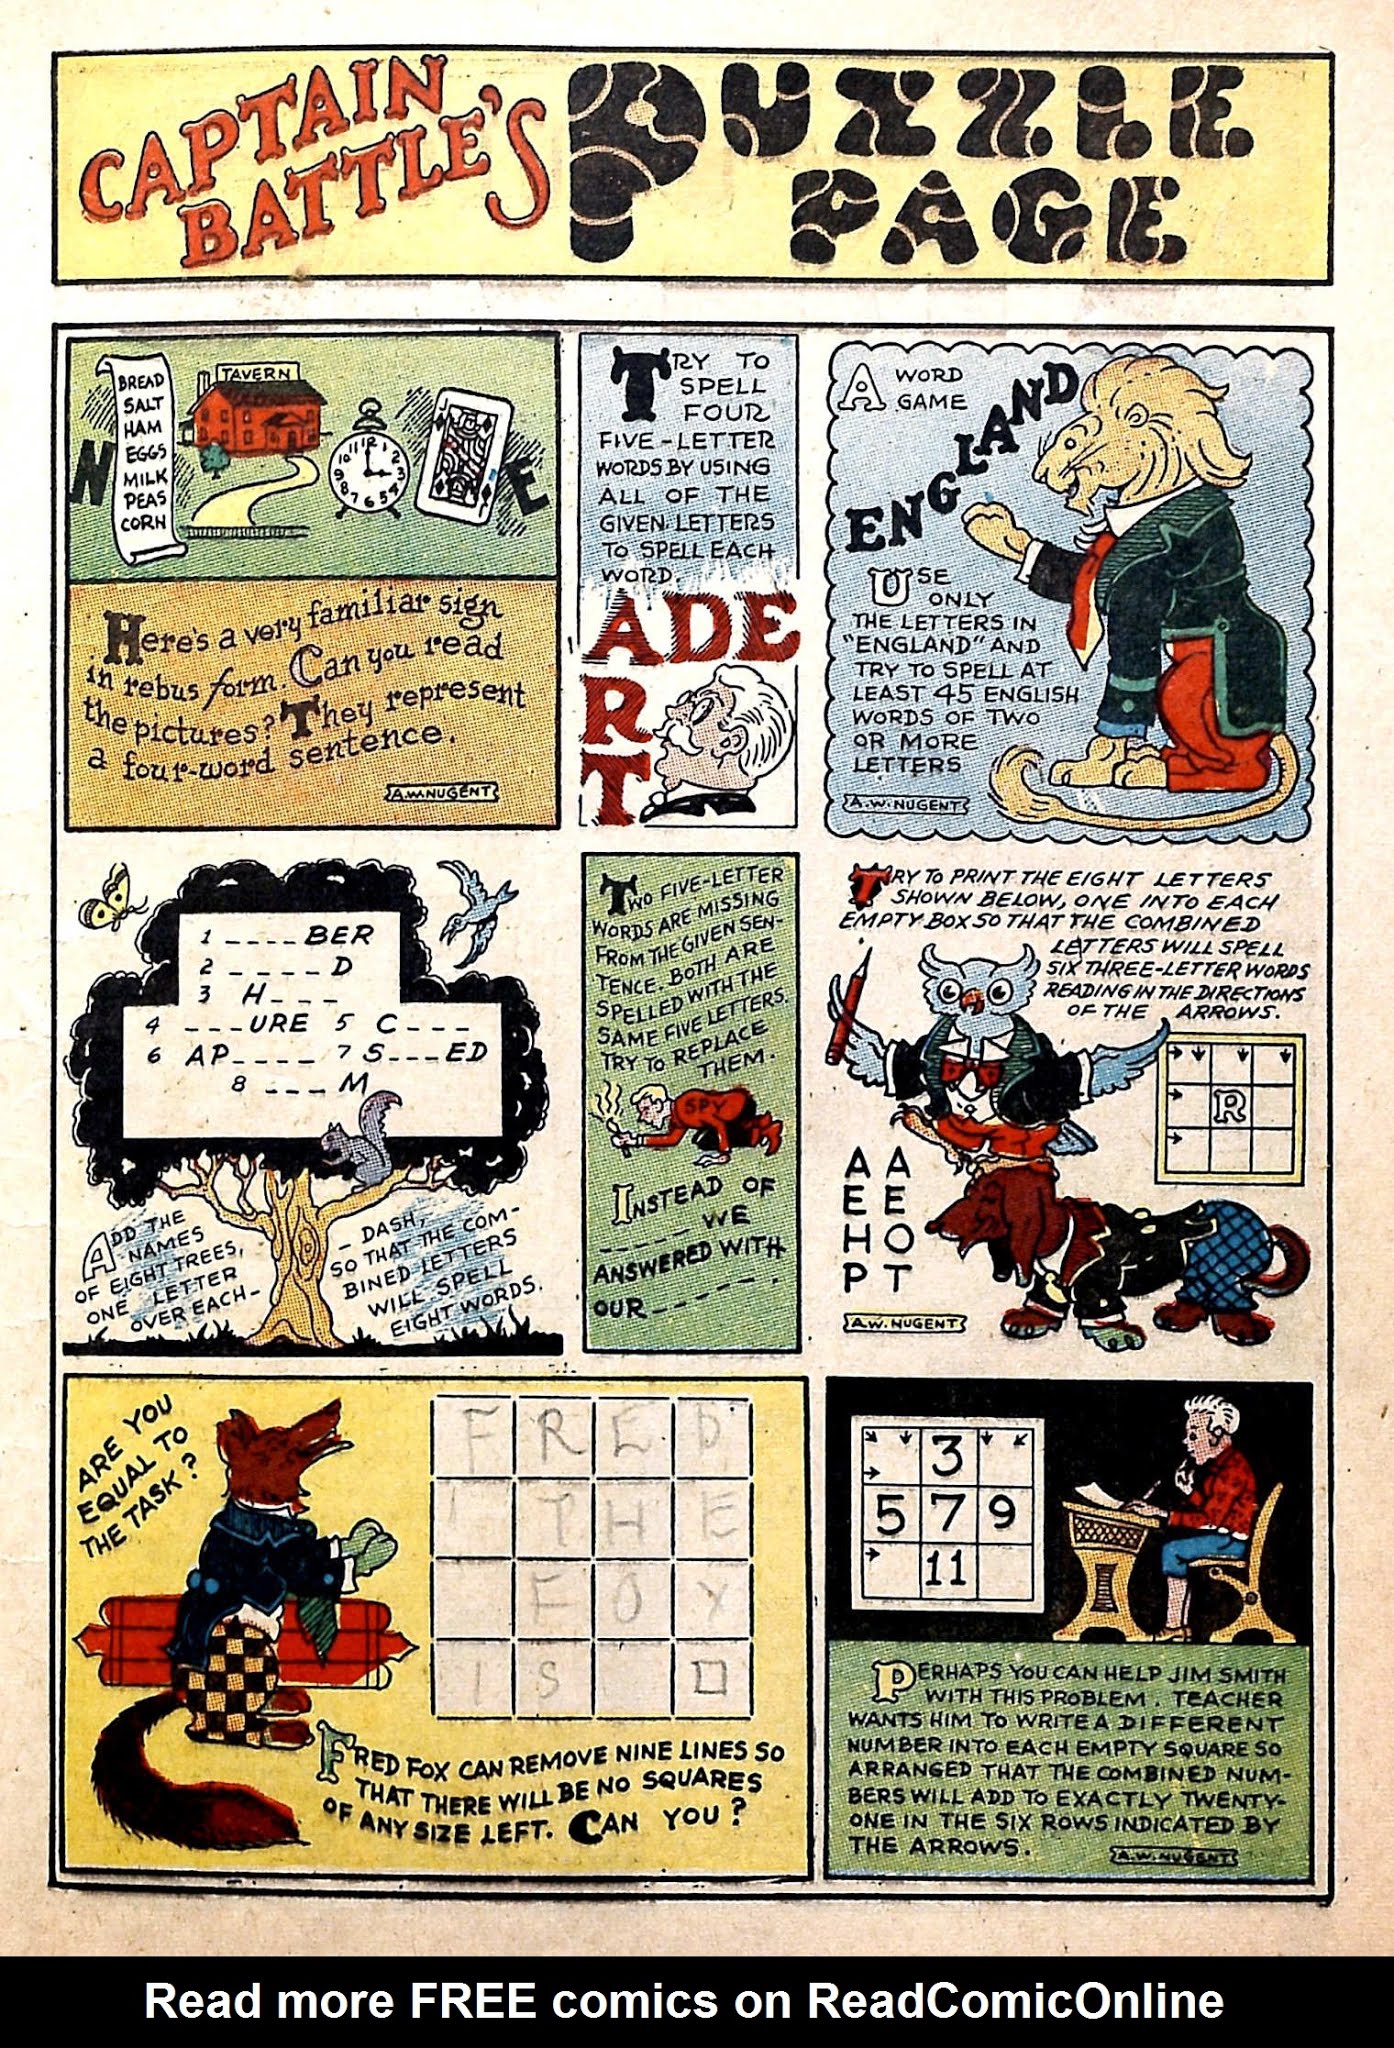 CAPTAIN
BATTLE'S
PUZZLE
PAGE
N
BREAD
SALT
HAM
EGGS
MILK
PEAS
CORN
TAVERN
E
Here's a very familiar sign
in rebus form. Can you read
the pictures? They represent
a four-word sentence.
A.W. NUGENT
TRY TO
SPELL
FOUR
FIVE-LETTER
WORDS BY USING
ALL OF THE
GIVEN LETTERS
TO SPELL EACH
WORD.
ADE
R
T
A WORD
GAME
ENGLAND
USE
ONLY
THE LETTERS IN
"ENGLAND" AND
TRY TO SPELL AT
LEAST 45 ENGLISH
WORDS OF TWO
OR MORE
LETTERS
A.W. NUGENT
1 _ _ _ _ BER
2 _ _ _ _ D
3 H _ _ _
4 _ _ _ URE 5 C _ _ _
6 AP _ _ _ _ 7 S _ _ _ ED
8 _ _ _ M
ADD THE
NAMES
OF EIGHT TREES,
ONE LETTER
OVER EACH -
- DASH,
SO THAT THE COM-
BINED LETTERS
WILL SPELL
EIGHT WORDS.
TWO FIVE-LETTER
WORDS ARE MISSING
FROM THE GIVEN SEN-
TENCE. BOTH ARE
SPELLED WITH THE
SAME FIVE LETTERS.
TRY TO REPLACE
THEM.
SPY
INSTEAD OF
_ _ _ _ _ WE
ANSWERED WITH
OUR _ _ _ _ _ .
TRY TO PRINT THE EIGHT LETTERS
SHOWN BELOW, ONE INTO EACH
EMPTY BOX SO THAT THE COMBINED
LETTERS WILL SPELL
SIX THREE-LETTER WORDS
READING IN THE DIRECTIONS
OF THE ARROWS.
R
A A
E E
H O
P T
A.W. NUGENT
ARE YOU
EQUAL TO
THE TASK?
F R E D
T H E
F O X
I S
FRED FOX CAN REMOVE NINE LINES SO
THAT THERE WILL BE NO SQUARES
OF ANY SIZE LEFT. CAN YOU?
3
5 7 9
11
PERHAPS YOU CAN HELP JIM SMITH
WITH THIS PROBLEM. TEACHER
WANTS HIM TO WRITE A DIFFERENT
NUMBER INTO EACH EMPTY SQUARE SO
ARRANGED THAT THE COMBINED NUM-
BERS WILL ADD TO EXACTLY TWENTY-
ONE IN THE SIX ROWS INDICATED BY
THE ARROWS.
A.W. NUGENT
Read more FREE comics on ReadComicOnline